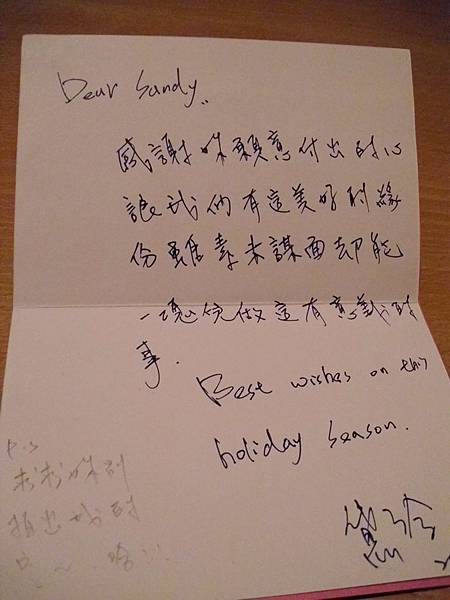 Dear Sandy..
感謝妳願意付出的心
讓我們有這美好的緣
份雖素未謀面卻能
一塊完做這有意義的
事.
Best wishes on this
holiday season.
P.S
求求妳別
指出我的